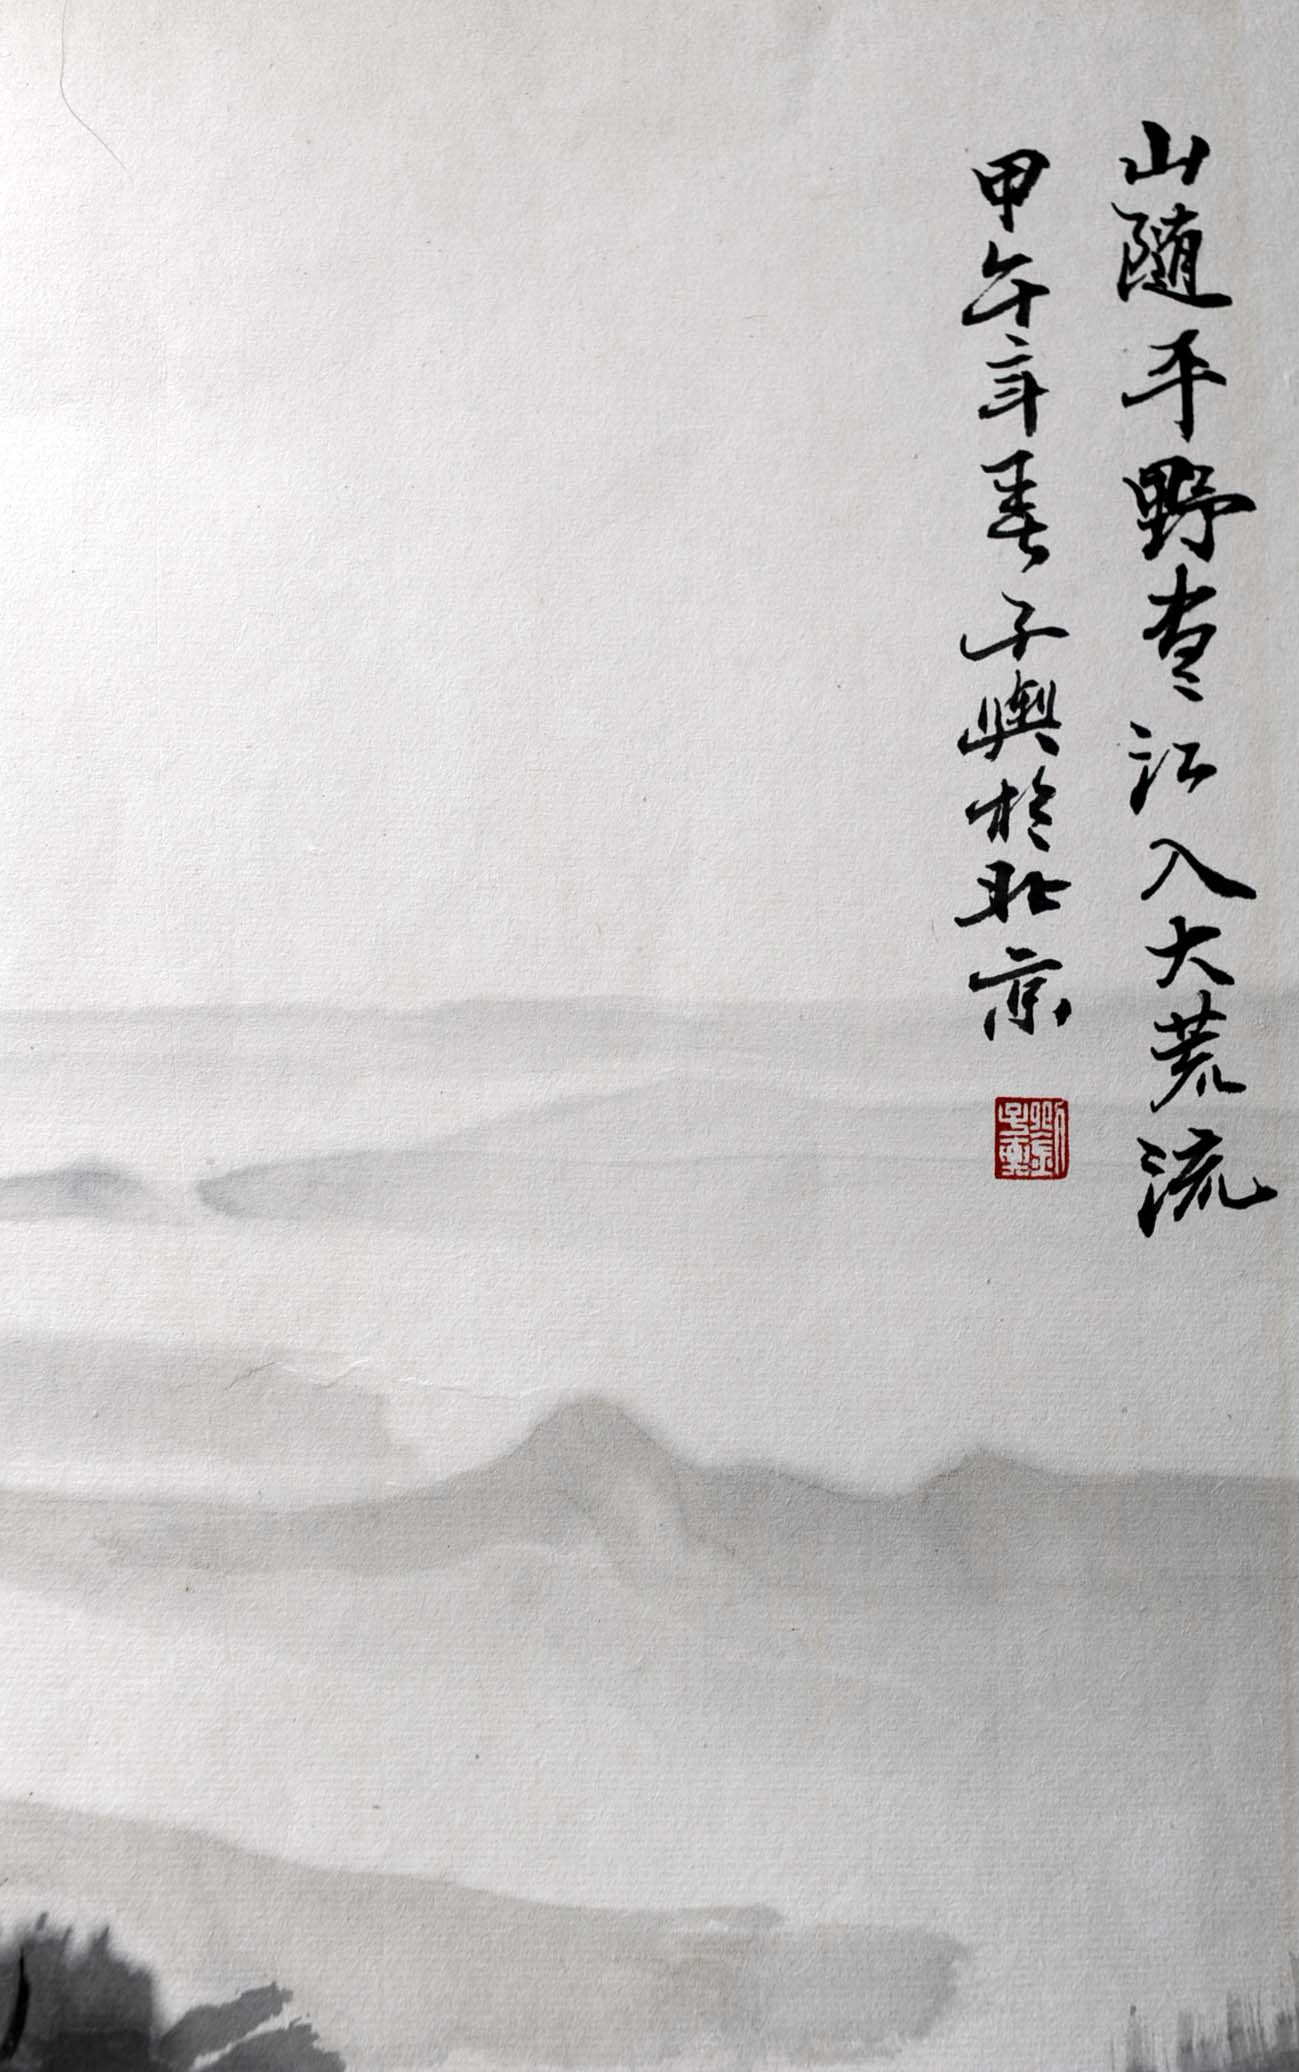 山随平野盡江入大荒流
甲午年春子輿於北京